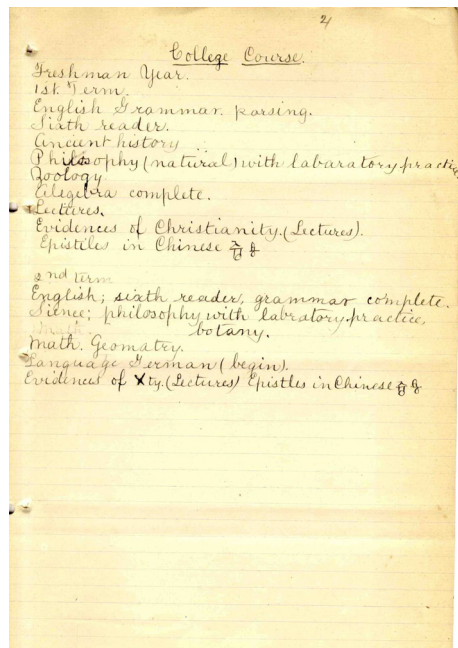 2/
College Course.
Freshman Year.
1st. Term.
English Grammar. parsing.
Sixth reader.
Ancient history
Philosophy (natural) with labaratory practice
Zoology
Alegebra complete.
Lectures.
Evidences of Christianity. (Lectures).
Epistiles in Chinese
2nd term
English; sixth reader, grammar complete.
Sience; philosophy with labratory practice,
botany.
Math. Geomatry.
Language German (begin).
Evidences of Xty. (Lectures) Epistles in Chinese